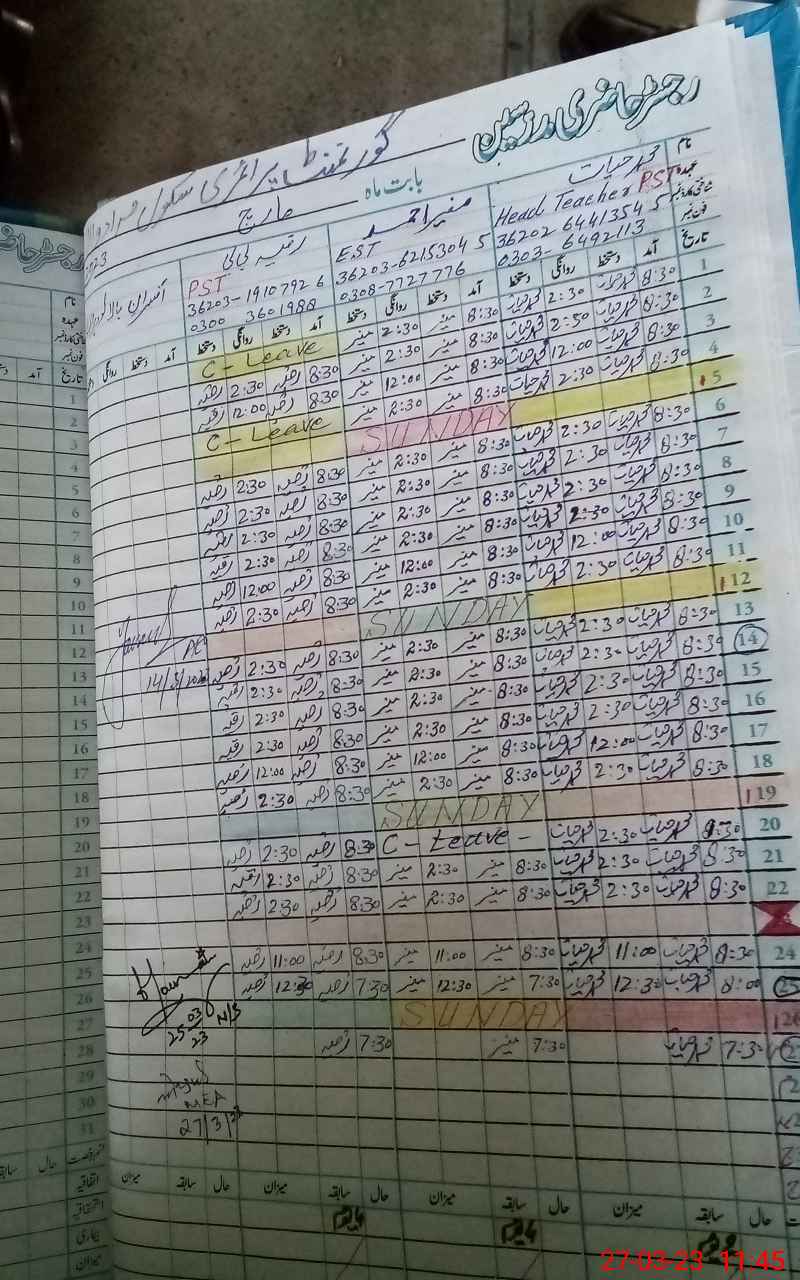 رجسٹر حاضری مدرسین
گورنمنٹ پرائمری سکول
بابت ماہ مارچ
نام محمد حیات منیر احمد رقیہ بی بی
عہدہ Head Teacher PST EST PST
شناختی کارڈ نمبر 36202 6441354 5 36203-6215304 5 36203-1910792 6
فون نمبر 0303-6492113 0308-7727776 0300 3601988
تاریخ آمد دستخط روانگی دستخط آمد دستخط روانگی دستخط آمد دستخط روانگی دستخط آمد دستخط روانگی
1 8:30 محمد حیات 2:30 محمد حیات 8:30 منیر 2:30 منیر C-Leave
2 8:30 محمد حیات 2:50 محمد حیات 8:30 منیر 2:30 منیر 8:30 رقیہ 2:30 رقیہ
3 8:30 محمد حیات 12:00 محمد حیات 8:30 منیر 12:00 منیر 8:30 رقیہ 12:00 رقیہ
4 8:30 محمد حیات 2:30 محمد حیات 8:30 منیر 2:30 منیر C-Leave
5 SUNDAY
6 8:30 محمد حیات 2:30 محمد حیات 8:30 منیر 2:30 منیر 8:30 رقیہ 2:30 رقیہ
7 8:30 محمد حیات 2:30 محمد حیات 8:30 منیر 2:30 منیر 8:30 رقیہ 2:30 رقیہ
8 8:30 محمد حیات 2:30 محمد حیات 8:30 منیر 2:30 منیر 8:30 رقیہ 2:30 رقیہ
9 8:30 محمد حیات 2:30 محمد حیات 8:30 منیر 2:30 منیر 8:30 رقیہ 2:30 رقیہ
10 8:30 محمد حیات 12:00 محمد حیات 8:30 منیر 12:00 منیر 8:30 رقیہ 12:00 رقیہ
11 8:30 محمد حیات 2:30 محمد حیات 8:30 منیر 2:30 منیر 8:30 رقیہ 2:30 رقیہ
12 SUNDAY
13 8:30 محمد حیات 2:30 محمد حیات 8:30 منیر 2:30 منیر 8:30 رقیہ 2:30 رقیہ
14 8:30 محمد حیات 2:30 محمد حیات 8:30 منیر 2:30 منیر 8:30 رقیہ 2:30 رقیہ
15 8:30 محمد حیات 2:30 محمد حیات 8:30 منیر 2:30 منیر 8:30 رقیہ 2:30 رقیہ
16 8:30 محمد حیات 2:30 محمد حیات 8:30 منیر 2:30 منیر 8:30 رقیہ 2:30 رقیہ
17 8:30 محمد حیات 12:00 محمد حیات 8:30 منیر 12:00 منیر 8:30 رقیہ 12:00 رقیہ
18 8:30 محمد حیات 2:30 محمد حیات 8:30 منیر 2:30 منیر 8:30 رقیہ 2:30 رقیہ
19 SUNDAY
20 8:30 محمد حیات 2:30 محمد حیات C-Leave- 8:30 رقیہ 2:30 رقیہ
21 8:30 محمد حیات 2:30 محمد حیات 8:30 منیر 2:30 منیر 8:30 رقیہ 2:30 رقیہ
22 8:30 محمد حیات 2:30 محمد حیات 8:30 منیر 2:30 منیر 8:30 رقیہ 2:30 رقیہ
24 8:30 محمد حیات 11:00 محمد حیات 8:30 منیر 11:00 منیر 8:30 رقیہ 11:00 رقیہ
25 8:00 محمد حیات 12:30 محمد حیات 7:30 منیر 12:30 منیر 7:30 رقیہ 12:30 رقیہ
26 SUNDAY
7:30 محمد حیات 7:30 منیر 7:30 رقیہ
14/3/2023
25-03
23
MEA
27/3/23
حال سابقہ میزان حال سابقہ میزان حال سابقہ میزان حال سابقہ میزان
نام
عہدہ
شناختی کارڈ نمبر
فون نمبر
تاریخ آمد
1
2
3
4
5
6
7
8
9
10
11
12
13
14
15
16
17
18
19
20
21
22
23
24
25
26
27
28
29
30
31
قسم رخصت حال سابقہ
اتفاقیہ
استحقاقیہ
بیماری
میزان
27-03-23 11:45